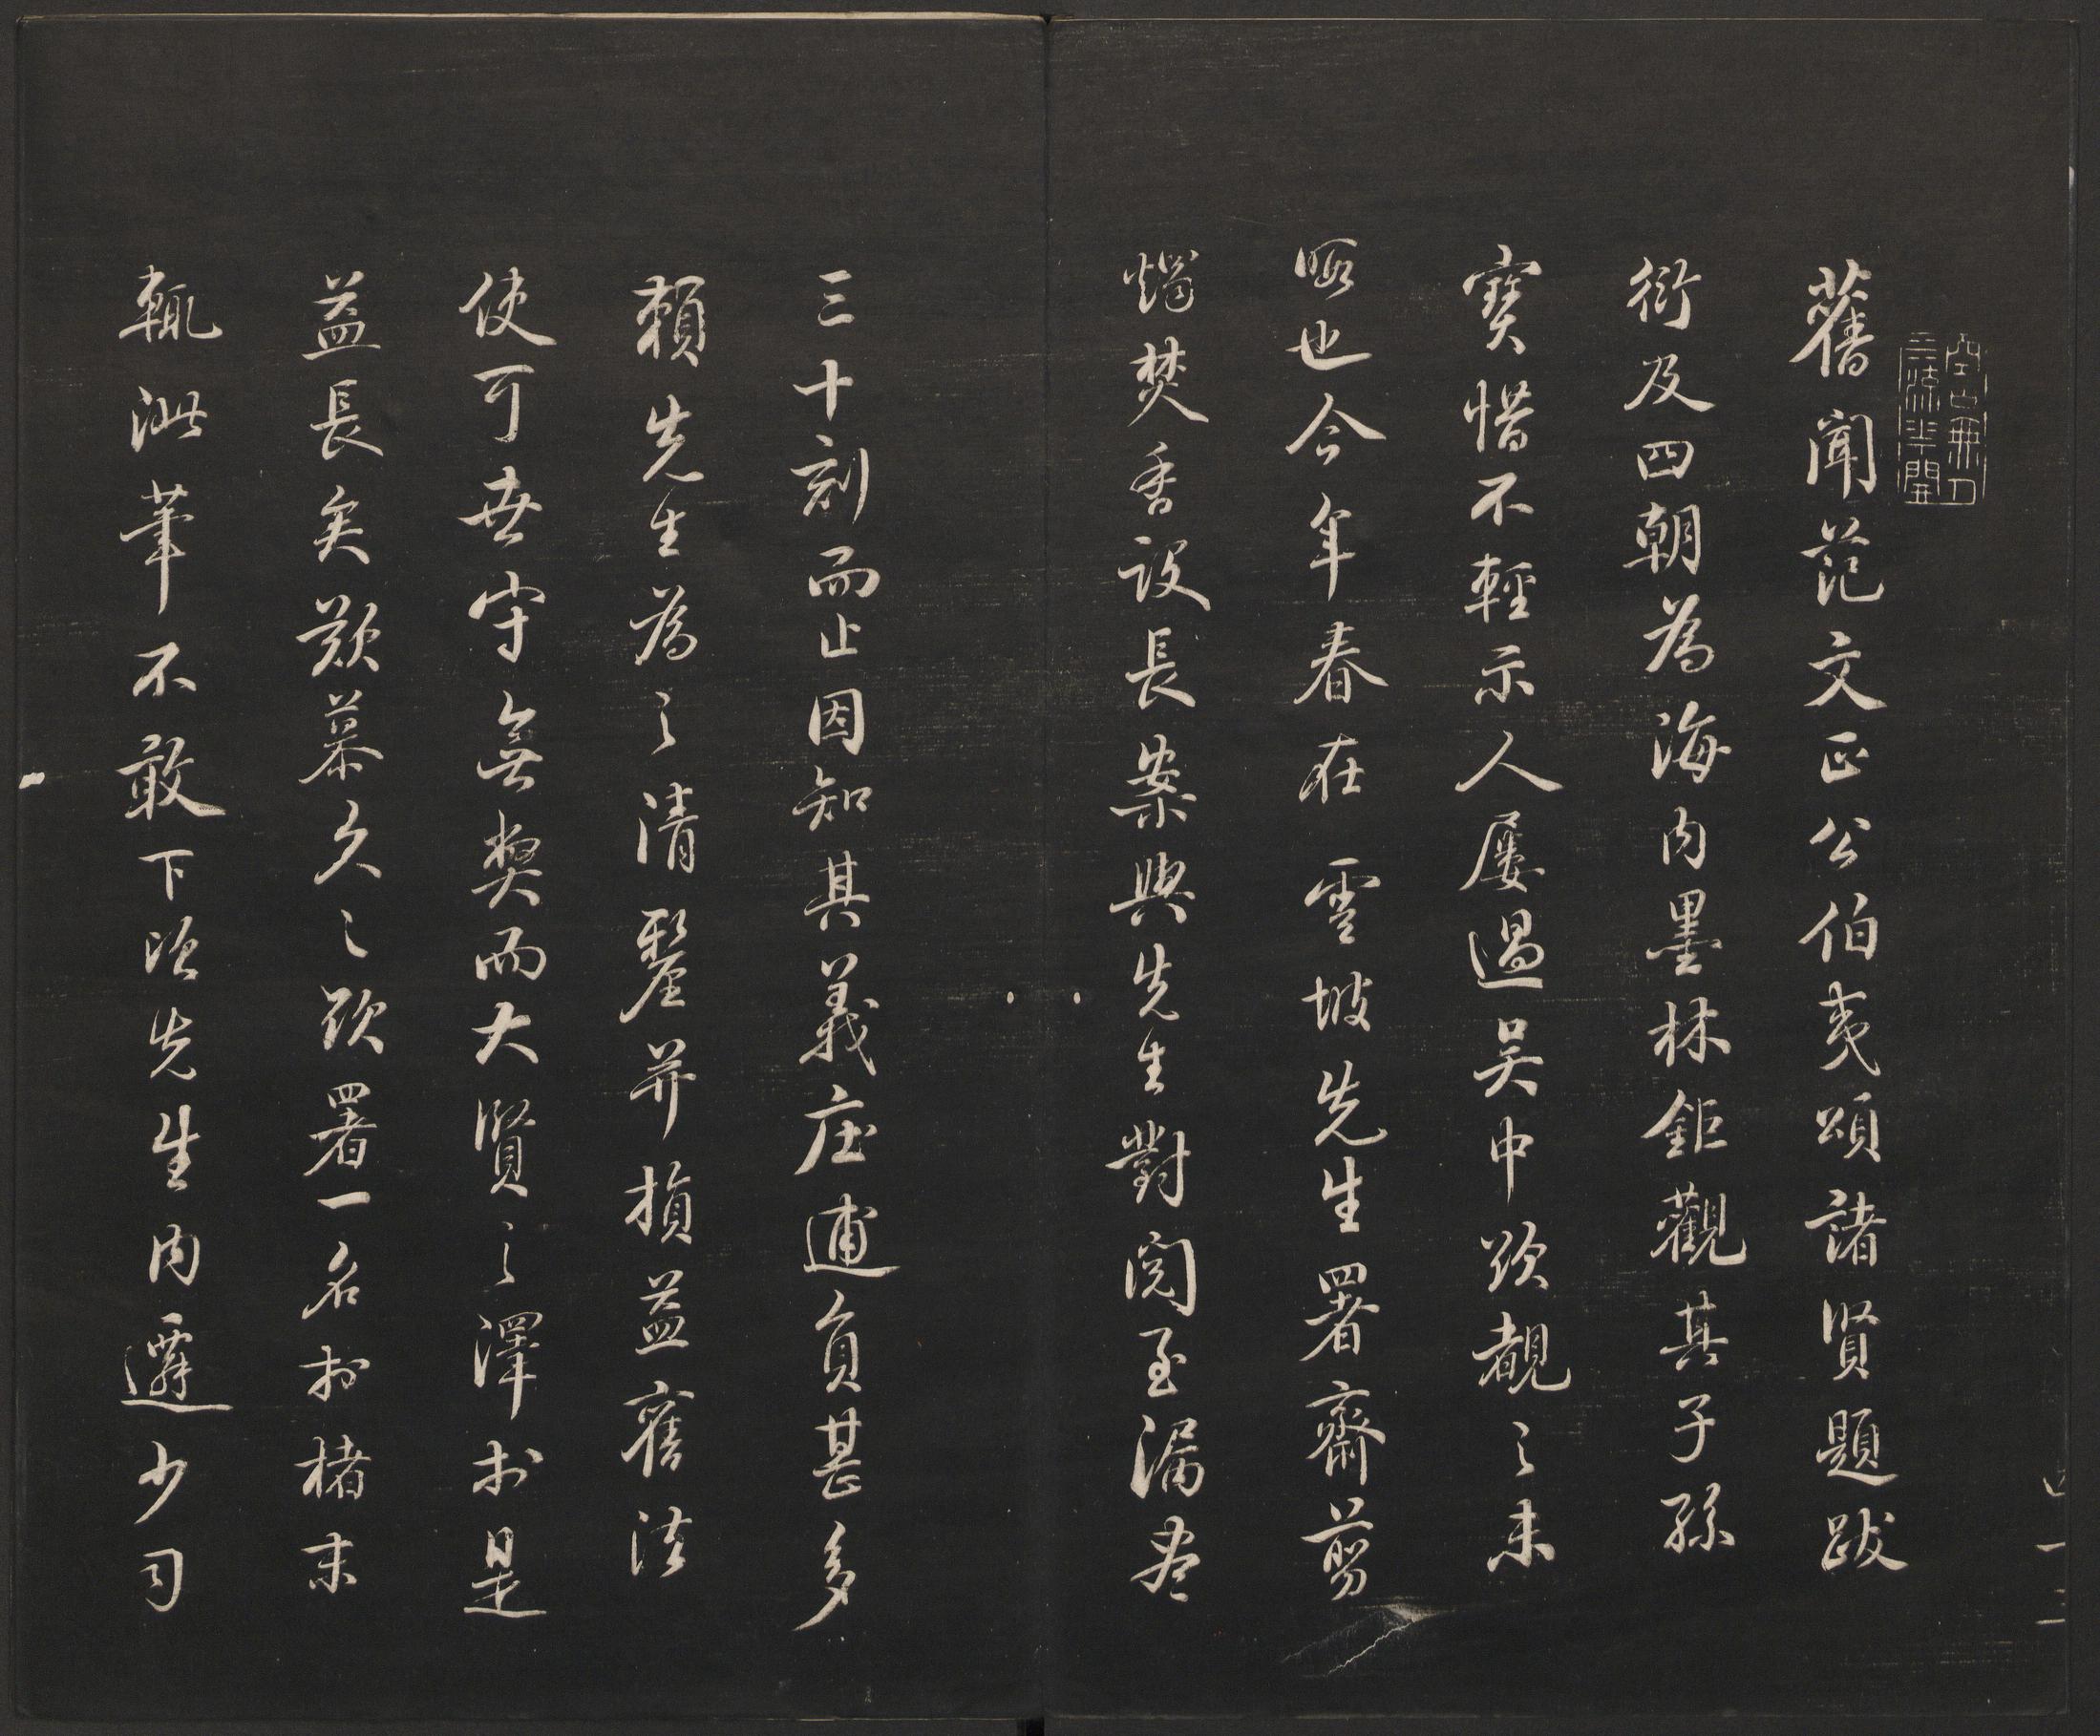 舊聞范文正公伯夷頌諸賢題跋
衍及四朝為海内墨林鉅觀其子孫
寶惜不輕示人屡過吴中欲覩之未
暇也今年春在雪坡先生署齋剪
燭焚香設長案與先生對閱至漏盡
三十刻而止因知其義庄逋負甚多
賴先生為之清釐并損益舊法
使可世守無獘而大賢之澤於是
益長矣歎慕久之欲署一名於楮末
輒泚筆不敢下次先生内遷少司